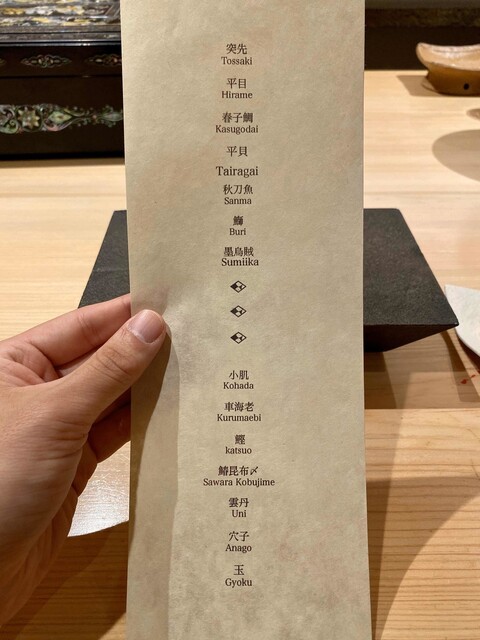 突先
Tossaki
平目
Hirame
春子鯛
Kasugodai
平貝
Tairagai
秋刀魚
Sanma
鰤
Buri
墨烏賊
Sumiika
小肌
Kohada
車海老
Kurumaebi
鰹
katsuo
鰆昆布〆
Sawara Kobujime
雲丹
Uni
穴子
Anago
玉
Gyoku